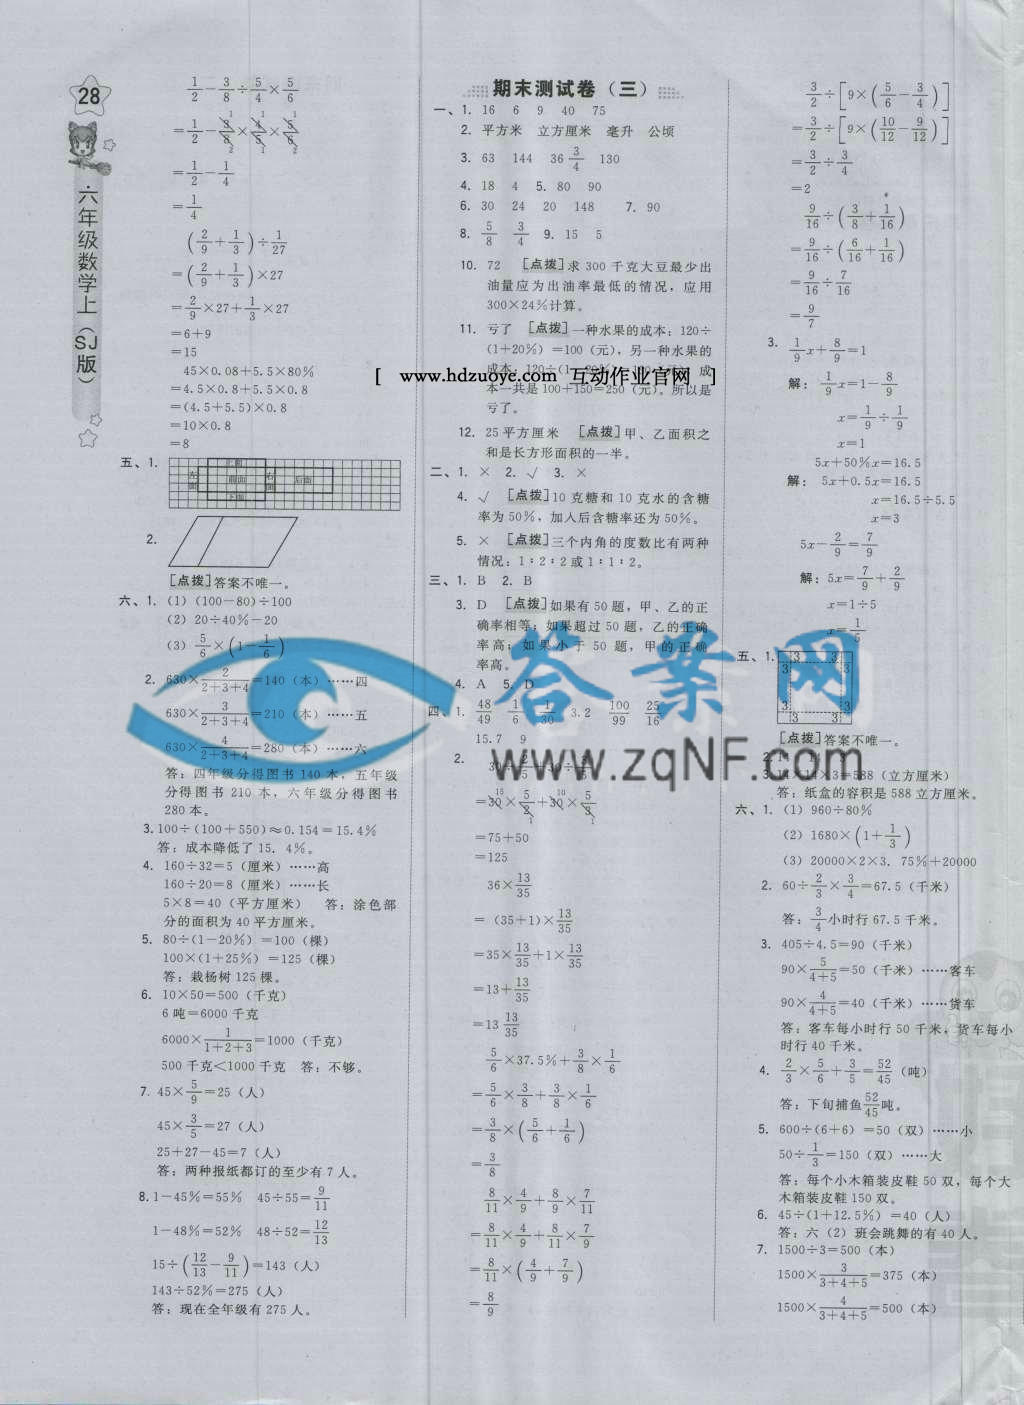 28
六年级数学上（SJ版）
1/2－3/8÷5/4×5/6
＝1/2－3/8×4/5×5/6
＝1/2－1/4
＝1/4
（2/9＋1/3）÷1/27
＝（2/9＋1/3）×27
＝2/9×27＋1/3×27
＝6＋9
＝15
45×0.08＋5.5×80％
＝4.5×0.8＋5.5×0.8
＝(4.5＋5.5)×0.8
＝10×0.8
＝8
五、1.
左面 前面 右面 后面
下面
2.
［点拨］答案不唯一。
六、1.（1）(100－80)÷100
（2）20÷40％－20
（3）5/6×（1－1/6）
2. 630×2/(2＋3＋4)＝140（本）……四
630×3/(2＋3＋4)＝210（本）……五
630×4/(2＋3＋4)＝280（本）……六
答：四年级分得图书 140 本，五年级
分得图书 210 本，六年级分得图书
280 本。
3. 100÷(100＋550)≈0.154＝15.4％
答：成本降低了 15.4％。
4. 160÷32＝5（厘米）……高
160÷20＝8（厘米）……长
5×8＝40（平方厘米） 答：涂色部
分的面积为 40 平方厘米。
5. 80÷(1－20％)＝100（棵）
100×(1＋25％)＝125（棵）
答：栽杨树 125 棵。
6. 10×50＝500（千克）
6 吨＝6000 千克
6000×1/(1＋2＋3)＝1000（千克）
500 千克＜1000 千克 答：不够。
7. 45×5/9＝25（人）
45×3/5＝27（人）
25＋27－45＝7（人）
答：两种报纸都订的至少有 7 人。
8. 1－45％＝55％ 45÷55＝9/11
1－48％＝52％ 48÷52＝12/13
15÷（12/13－9/11）＝143（人）
143÷52％＝275（人）
答：现在全年级有 275 人。
期末测试卷（三）
一、1. 16 6 9 40 75
2. 平方米 立方厘米 毫升 公顷
3. 63 144 36 3/4 130
4. 18 4 5. 80 90
6. 30 24 20 148 7. 90
8. 5/8 3/4 9. 15 5
10. 72 ［点拨］求 300 千克大豆最少出
油量应为出油率最低的情况，应用
300×24％计算。
11. 亏了 ［点拨］一种水果的成本：120÷
(1＋20％)＝100（元），另一种水果的
成本：120÷(1－20％)＝150（元），成
本一共是 100＋150＝250（元）。所以是
亏了。
[ www.hdzuoye.com 互动作业官网 ]
12. 25 平方厘米 ［点拨］甲、乙面积之
和是长方形面积的一半。
二、1. × 2. √ 3. ×
4. √ ［点拨］10 克糖和 10 克水的含糖
率为 50％，加入后含糖率还为 50％。
5. × ［点拨］三个内角的度数比有两种
情况：1∶2∶2 或 1∶1∶2。
三、1. B 2. B
3. D ［点拨］如果有 50 题，甲、乙的正
确率相等；如果超过 50 题，乙的正确
率高；如果小于 50 题，甲的正确
率高。
4. A 5. D
四、1. 48/49 1/6 1/30 3.2 100/99 25/16
15.7 9
2. 30÷2/5＋30÷3/5
＝30×5/2＋30×5/3
＝75＋50
＝125
36×13/35
＝(35＋1)×13/35
＝35×13/35＋1×13/35
＝13＋13/35
＝13 13/35
5/6×37.5％＋3/8×1/6
＝5/6×3/8＋3/8×1/6
＝3/8×（5/6＋1/6）
＝3/8
8/11×4/9＋8/9×7/11
＝8/11×4/9＋8/11×7/9
＝8/11×（4/9＋7/9）
＝8/9
3/2÷[9×（5/6－3/4）]
＝3/2÷[9×（10/12－9/12）]
＝3/2÷3/4
＝2
9/16÷（3/8＋1/16）
＝9/16÷（6/16＋1/16）
＝9/16÷7/16
＝9/7
3. 1/9x＋8/9＝1
解：1/9x＝1－8/9
x＝1/9÷1/9
x＝1
5x＋50％x＝16.5
解：5x＋0.5x＝16.5
x＝16.5÷5.5
x＝3
5x－2/9＝7/9
解：5x＝7/9＋2/9
x＝1÷5
x＝1/5
五、1.
3 3 3 3
3 3 3 3
［点拨］答案不唯一。
2. 14 14 3
3. 14×14×3＝588（立方厘米）
答：纸盒的容积是 588 立方厘米。
六、1.（1）960÷80％
（2）1680×（1＋1/3）
（3）20000×2×3.75％＋20000
2. 60÷2/3×3/4＝67.5（千米）
答：3/4小时行 67.5 千米。
3. 405÷4.5＝90（千米）
90×5/(4＋5)＝50（千米）……客车
90×4/(4＋5)＝40（千米）……货车
答：客车每小时行 50 千米，货车每小
时行 40 千米。
4. 2/3×5/6＋3/5＝52/45（吨）
答：下旬捕鱼52/45吨。
5. 600÷(6＋6)＝50（双）……小
50÷1/3＝150（双）……大
答：每个小木箱装皮鞋 50 双，每个大
木箱装皮鞋 150 双。
6. 45÷(1＋12.5％)＝40（人）
答：六（2）班会跳舞的有 40 人。
7. 1500÷3＝500（本）
1500×3/(3＋4＋5)＝375（本）
1500×4/(3＋4＋5)＝500（本）
答案网
www.zqNF.com